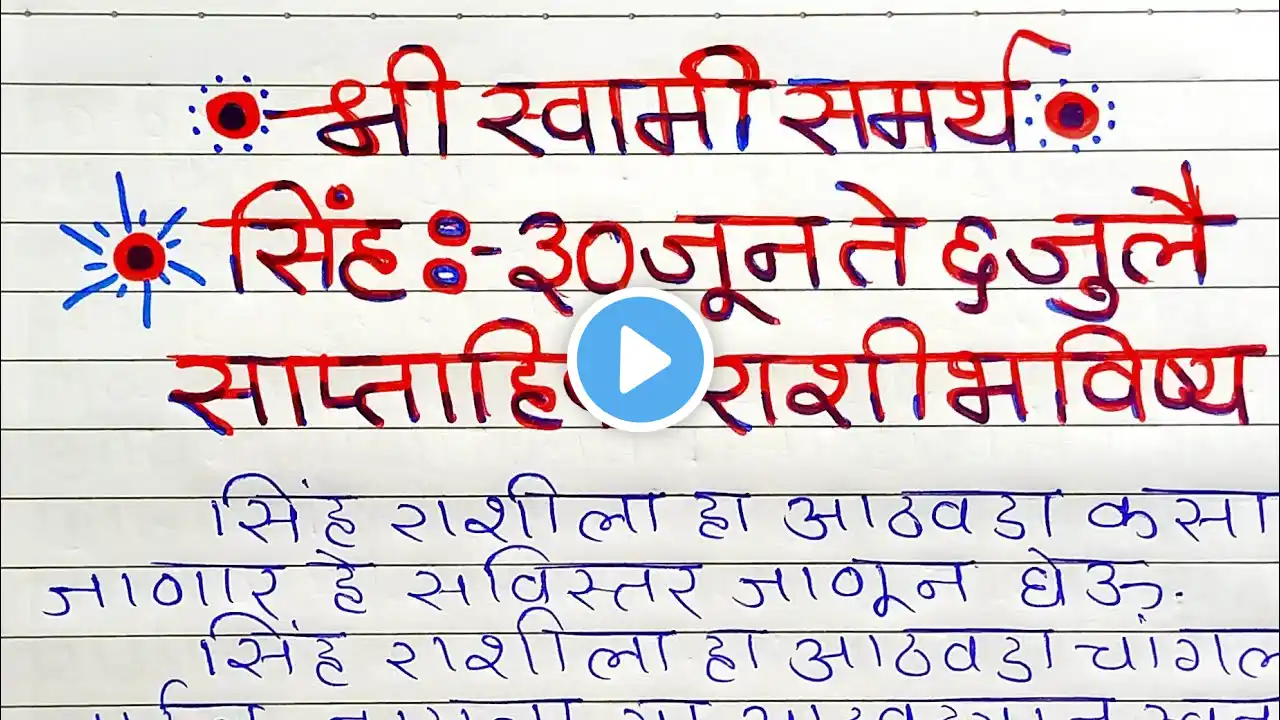 श्री स्वामी समर्थ
सिंह :- ३० जून ते ६ जुलै
साप्ताहिक राशीभविष्य
सिंह राशीला हा आठवडा कसा
जाणार हे सविस्तर जाणून घेऊ.
सिंह राशीला हा आठवडा चांगल